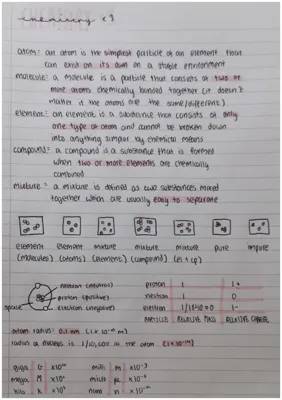 chemistry c3
atom: an atom is the simplest particle of an element that
can exist on its own on a stable environment
molecule: a molecule is a particle that consists of two or
more atoms chemically bonded together (it doesn't
matter if the atoms are the same/different)
element: an element is a substance that consists of only
one type of atom and cannot be broken down
into anything simpler by chemical means
compound: a compound is a substance that is formed
when two or more elements are chemically
combined
mixture: a mixture is defined as two substances mixed
together which are usually easy to separate
element element mixture mixture mixture pure impure
(molecules) (atoms) (element) (compound) (el + cp)
neutron (neutral)
proton (positive)
space electron (negative)
proton 1 1+
neutron 1 0
electron 1/1840 ≈ 0 1-
PARTICLE RELATIVE MASS RELATIVE CHARGE
atom radius: 0.1 nm (1×10⁻¹⁰ m)
radius of nucleus is 1/10,000 of the atom (1×10⁻¹⁴)
giga G ×10⁹ milli m ×10⁻³
mega M ×10⁶ micro μ ×10⁻⁶
kilo K ×10³ nano n ×10⁻⁹